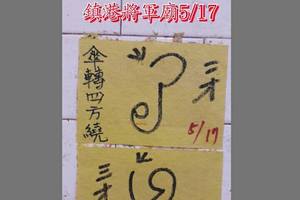 鎮港將軍廟5/17
傘轉四方繞
三才
5/17
三才